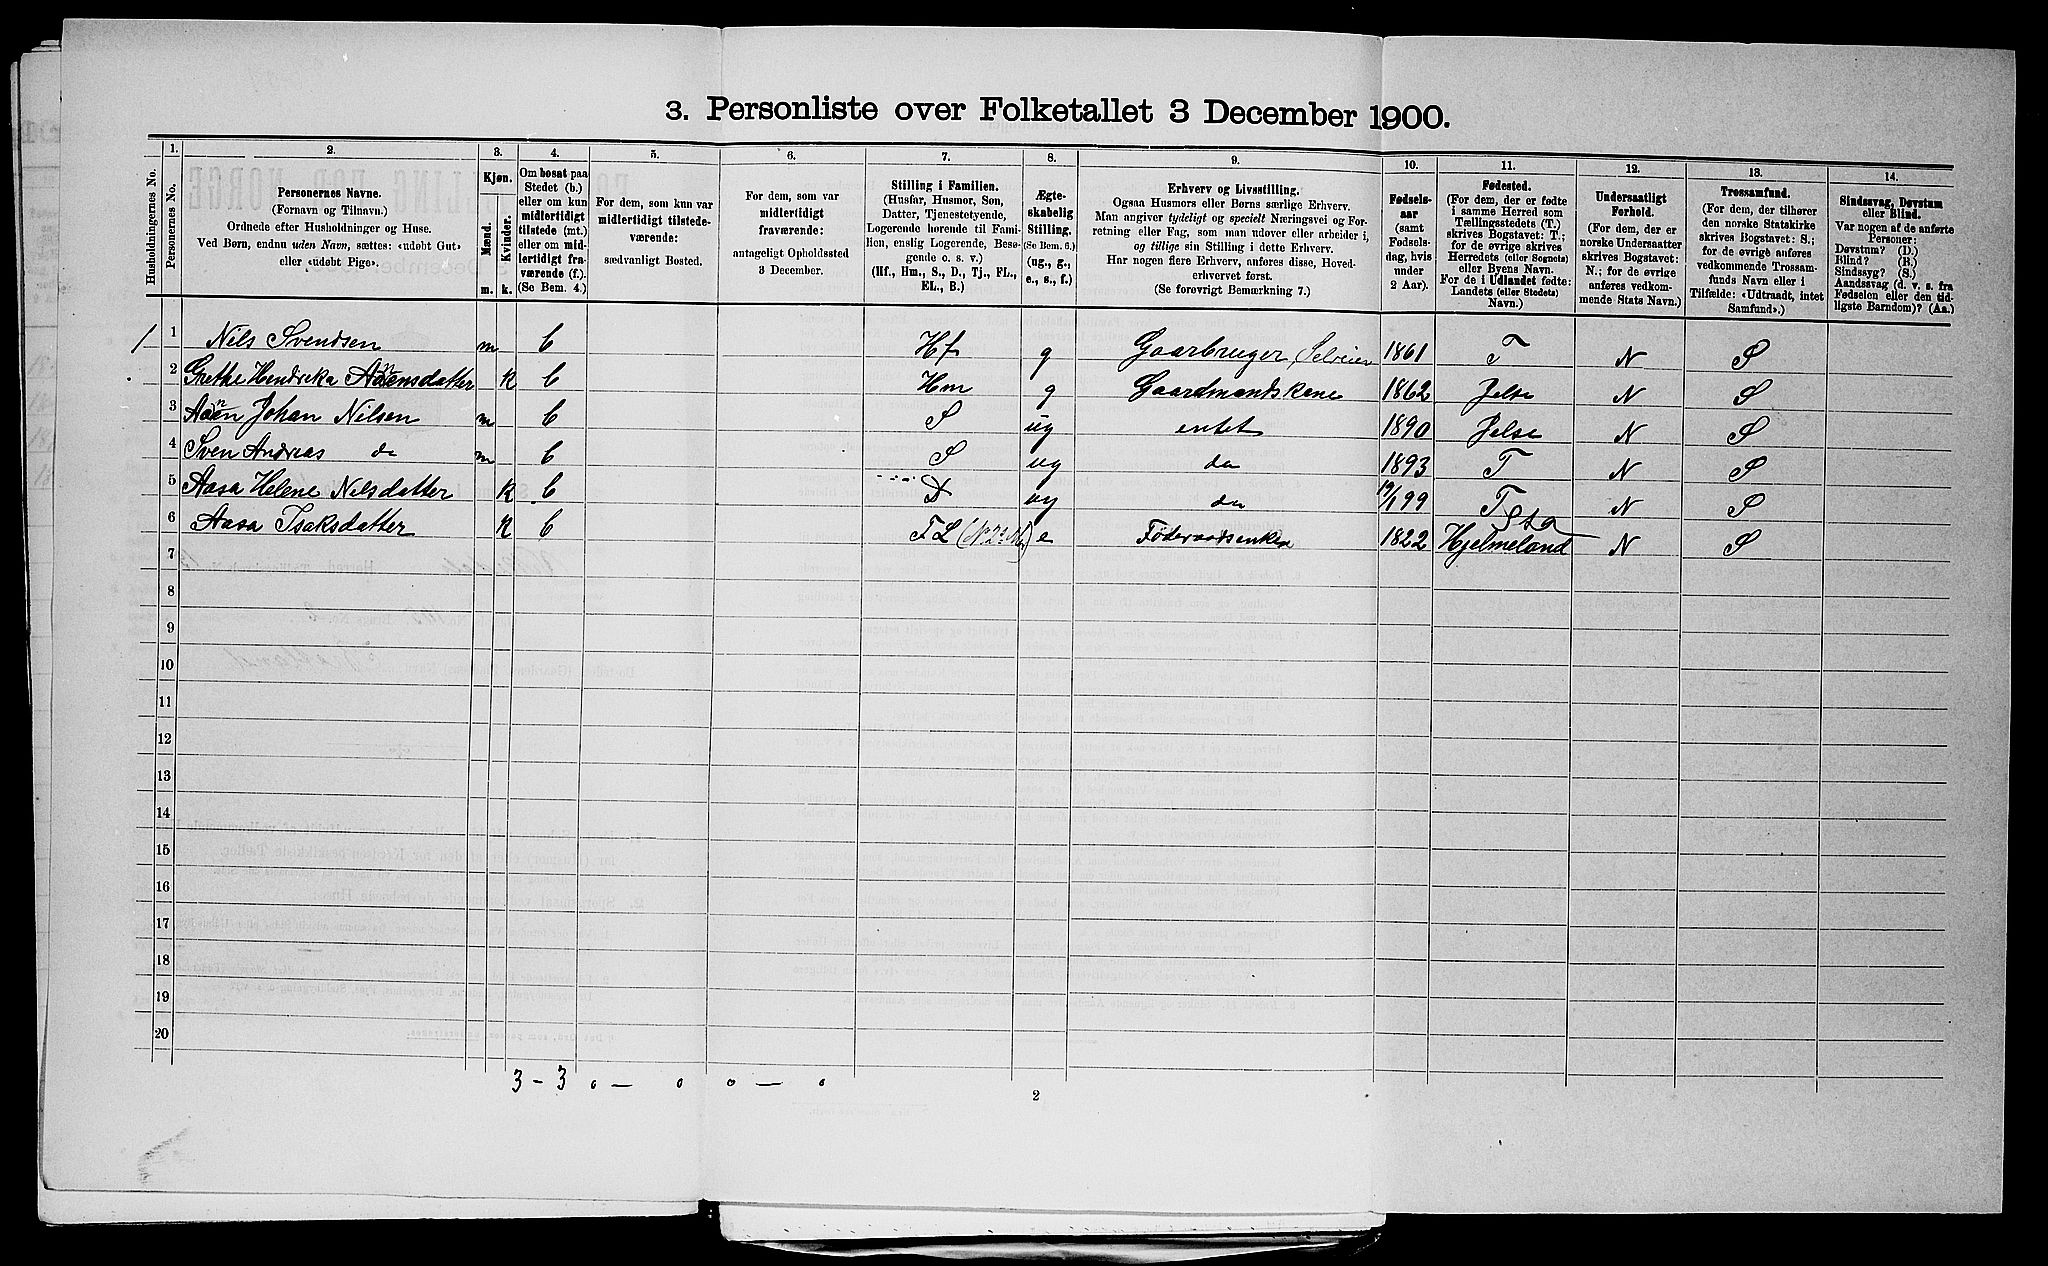 3. Personliste over Folketallet 3 December 1900.
1. 2. 3. 4. 5. 6. 7. 8. 9. 10. 11. 12. 13. 14.
Husholdningernes No.
Personernes No.
Personernes Navne.
(Fornavn og Tilnavn.)
Ordnede efter Husholdninger og Huse.
Ved Børn, endnu uden Navn, sættes: «udøbt Gut»
eller «udøbt Pige».
Kjøn.
Mænd.
Kvinder.
m. k.
Om bosat paa
Stedet (b.)
eller om kun
midlertidigt
tilstede (mt.)
eller om mid-
lertidigt fra-
værende (f.).
(Se Bem. 4.)
For dem, som kun var
midlertidigt tilstede-
værende:
sædvanligt Bosted.
For dem, som var
midlertidigt
fraværende:
antageligt Opholdssted
3 December.
Stilling i Familien.
(Husfar, Husmor, Søn,
Datter, Tjenestetyende,
Logerende hørende til Fami-
lien, enslig Logerende, Besø-
gende o. s. v.)
(Hf., Hm., S., D., Tj., FL.,
EL., B.)
Ægte-
skabelig
Stilling.
(Se Bem. 6.)
(ug., g.,
e., s., f.)
Erhverv og Livsstilling.
Ogsaa Husmors eller Børns særlige Erhverv.
Man angiver tydeligt og specielt Næringsvei og For-
retning eller Fag, som man udover eller arbeider i,
og tillige sin Stilling i dette Erhverv.
Har nogen flere Erhverv, anføres disse, Hoved-
erhvervet først.
(Se forøvrigt Bemærkning 7.)
Fødsels-
aar
(samt
Fødsels-
dag, hvis
under
2 Aar).
Fødested.
(For dem, der er fødte
i samme Herred som
Tællingsstedets (T.)
skrives Bogstavet: T.;
for de øvrige skrives
Herredets (eller Sognets)
eller Byens Navn.
For de i Udlandet fødte:
Landets (eller Stedets)
Navn.)
Undersaatligt
Forhold.
(For dem, der er
norske Undersaatter
skrives Bogstavet:
N.; for de øvrige
anføres vedkom-
mende Stats Navn.)
Trossamfund.
(For dem, der tilhører
den norske Statskirke
skrives Bogstavet: S.;
for de øvrige anføres
vedkommende Trossam-
funds Navn eller i
Tilfælde: «Udtraadt, intet
Samfund».)
Sindssvag, Døvstum
eller Blind.
Var nogen af de anførte
Personer:
Døvstum? (D.)
Blind? (B.)
Sindssyg? (S.)
Aandssvag (d. v. s. fra
Fødselen eller den tid-
ligste Barndom)? (Aa.)
1 1 Nils Svendsen m b Hf g Gaarbruger, Selveier 1861 T N S
2 Grethe Hendreka Aanensdatter k b Hm g Gaardmandskone 1862 Jelse N S
3 Aanen Johan Nilsen m b S ug entet 1890 Jelse N S
4 Sven Andreas do m b S ug do 1893 T N S
5 Aasa Helene Nilsdatter k b D ug do 19/1 99 T N S
6 Aasa Isaksdatter k b FL e Føderaadsenke 1822 Hjelmeland N S
7
8
9
10
11
12
13
14
15
16
17
18
19
20
3 - 3 0 — 0 0 — 0
2